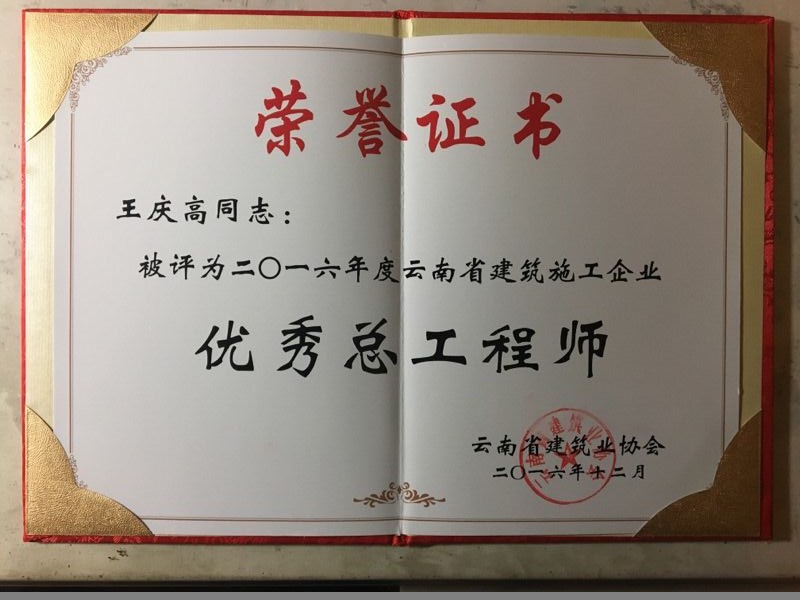 荣誉证书
王庆高同志：
被评为二〇一六年度云南省建筑施工企业
优秀总工程师
云南省建筑业协会
二〇一六年十二月
云南省建筑业协会